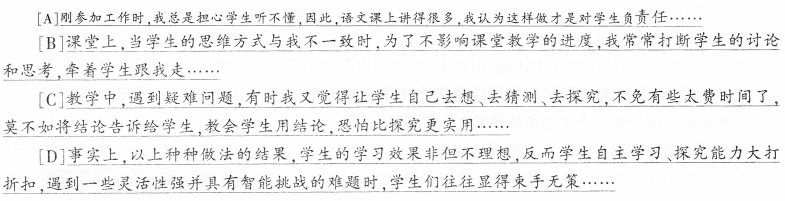 [A]刚参加工作时,我总是担心学生听不懂,因此,语文课上讲得很多,我认为这样做才是对学生负责任……
[B]课堂上,当学生的思维方式与我不一致时,为了不影响课堂教学的进度,我常常打断学生的讨论
和思考,牵着学生跟我走……
[C]教学中,遇到疑难问题,有时我又觉得让学生自己去想、去猜测、去探究,不免有些太费时间了,
莫不如将结论告诉给学生,教会学生用结论,恐怕比探究更实用……
[D]事实上,以上种种做法的结果,学生的学习效果非但不理想,反而学生自主学习、探究能力大打
折扣,遇到一些灵活性强并具有智能挑战的难题时,学生们往往显得束手无策……